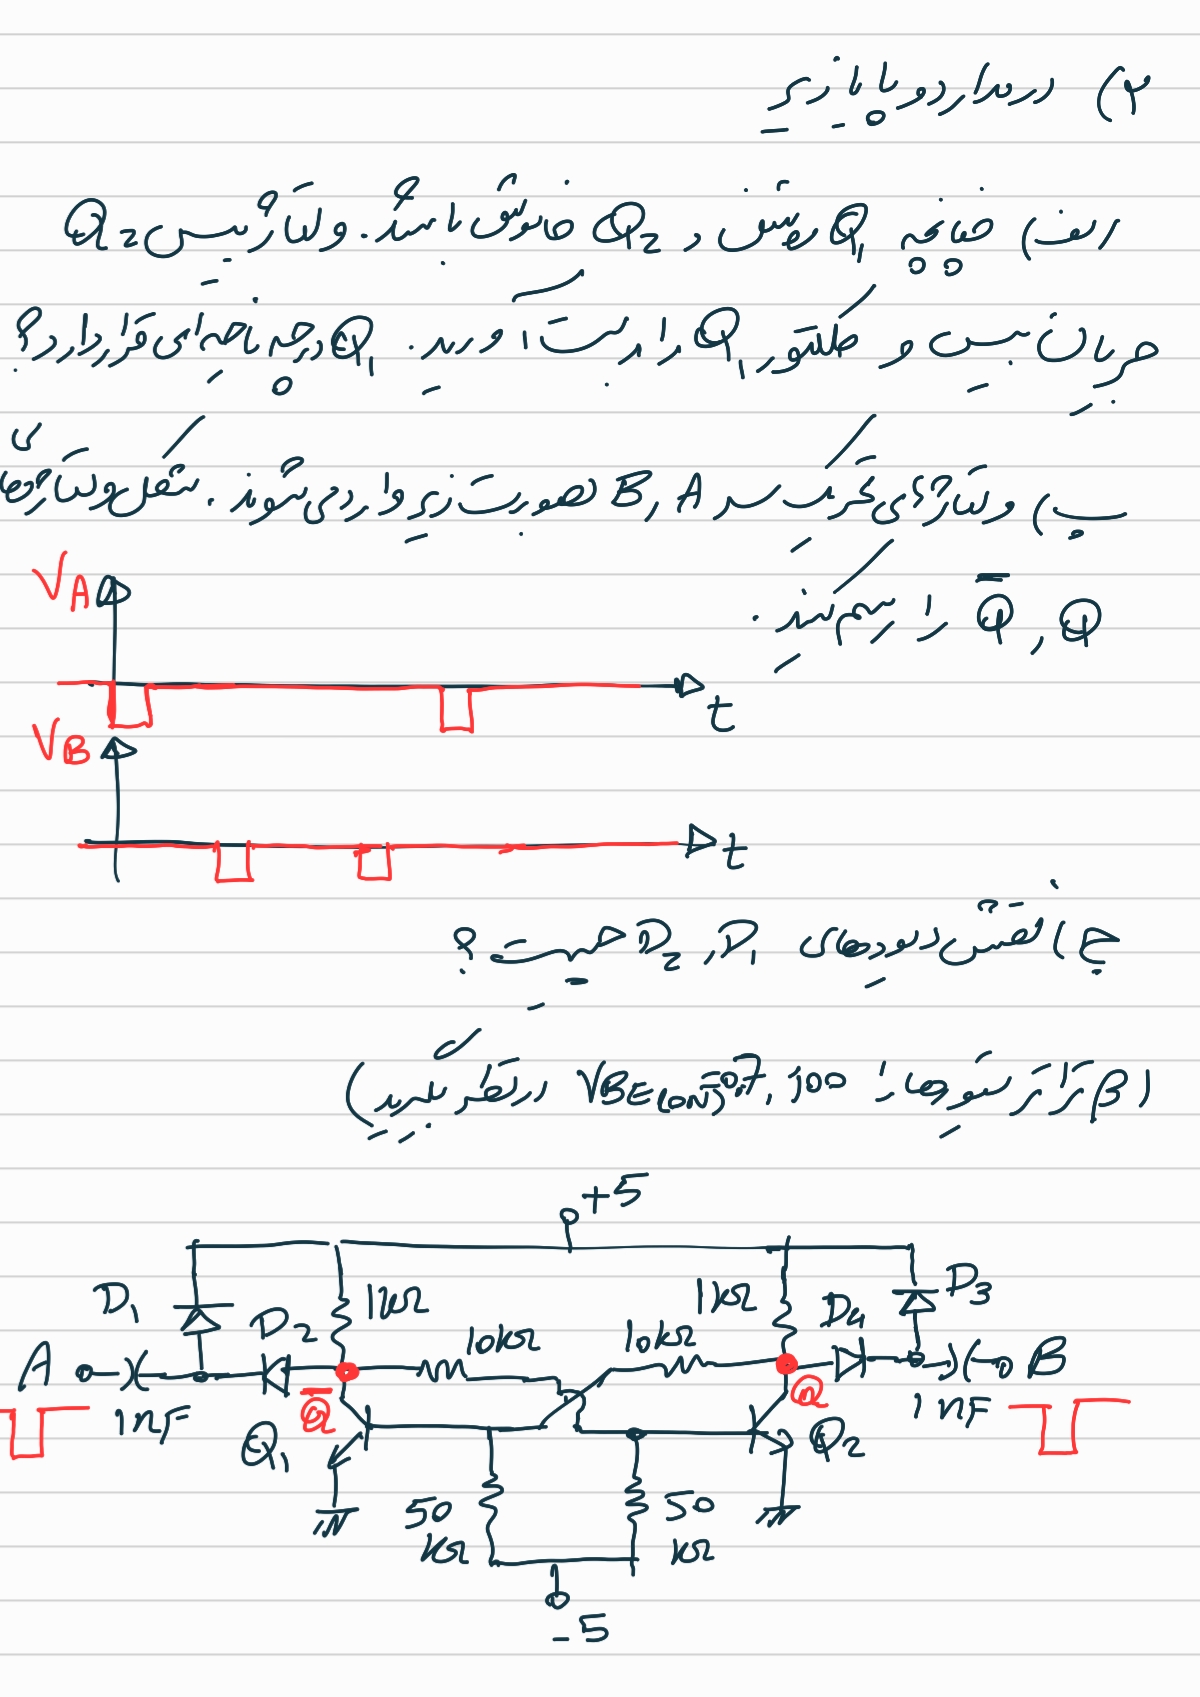 ۲) در مدار دو پایا زیر
الف) چنانچه Q1 روشن و Q2 خاموش باشد. ولتاژ بیس Q2
جریان بیس و کلکتور Q1 را بدست آورید. Q1 در چه ناحیه ای قرار دارد؟
ب) ولتاژهای تحریک سر A و B بصورت زیر وارد می شوند. شکل ولتاژهای
Q و Q̅ را رسم کنید.
VA
t
VB
t
ج) نقش دیودهای D1 و D2 چیست؟
(β ترانزیستورها را 100 و VBE(ON)=0.7 در نظر بگیرید)
+5
D1 D2 1kΩ 10kΩ 10kΩ 1kΩ D4 D3
A 1nF Q̅ Q 1nF B
Q1 Q2
50 kΩ 50 kΩ
-5